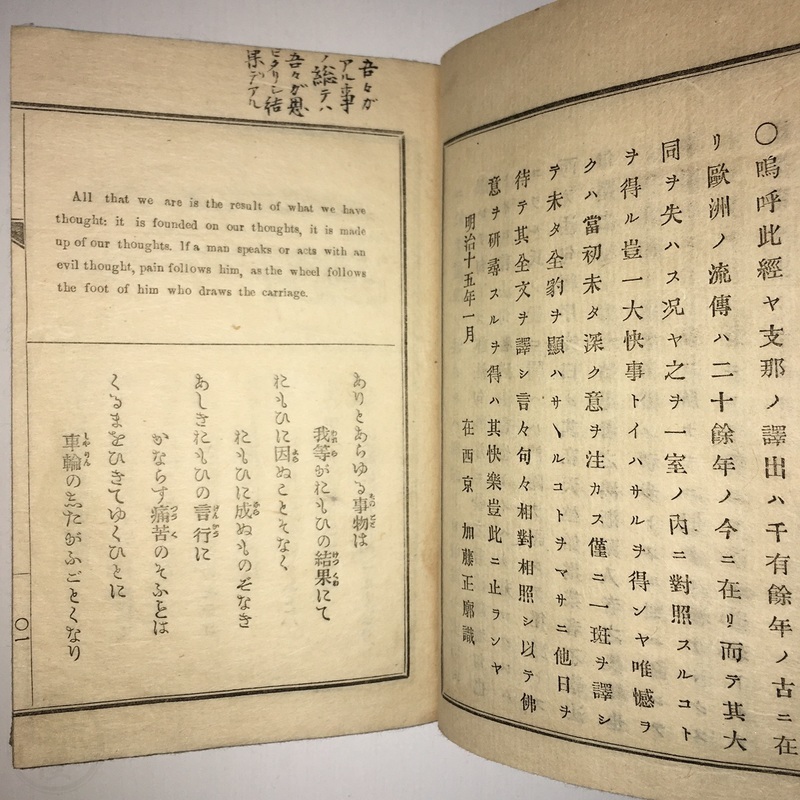 〇嗚呼此經ヤ支那ノ譯出ハ千有餘年ノ古ニ在
リ歐洲ノ流傳ハ二十餘年ノ今ニ在リ而テ其大
同ヲ失ハス况ヤ之ヲ一室ノ內ニ對照スルコト
ヲ得ル豈一大快事トイハサルヲ得ンヤ唯憾ヲ
クハ當初未タ深ク意ヲ注カス僅ニ一斑ヲ譯シ
テ未タ全豹ヲ顯ハサヽルコトヲマサニ他日ヲ
待テ其全文ヲ譯シ言々句々相對相照シ以テ佛
意ヲ硏尋スルヲ得ハ其快樂豈此ニ止ランヤ
明治十五年一月 在西京 加藤正廓識
吾々ガ
アル事
ノ総テハ
吾々が思
結
果デアル
All that we are is the result of what we have
thought: it is founded on our thoughts, it is made
up of our thoughts. If a man speaks or acts with an
evil thought, pain follows him, as the wheel follows
the foot of him who draws the carriage.
ありとあらゆる事物は
我等がおもひの結果にて
おもひに因ぬことそなく
おもひに成ぬものぞなき
あしきおもひの言行に
かならす痛苦のそふことは
くるまをひきてゆくひとに
車輪の志たがふごとくなり
〇一